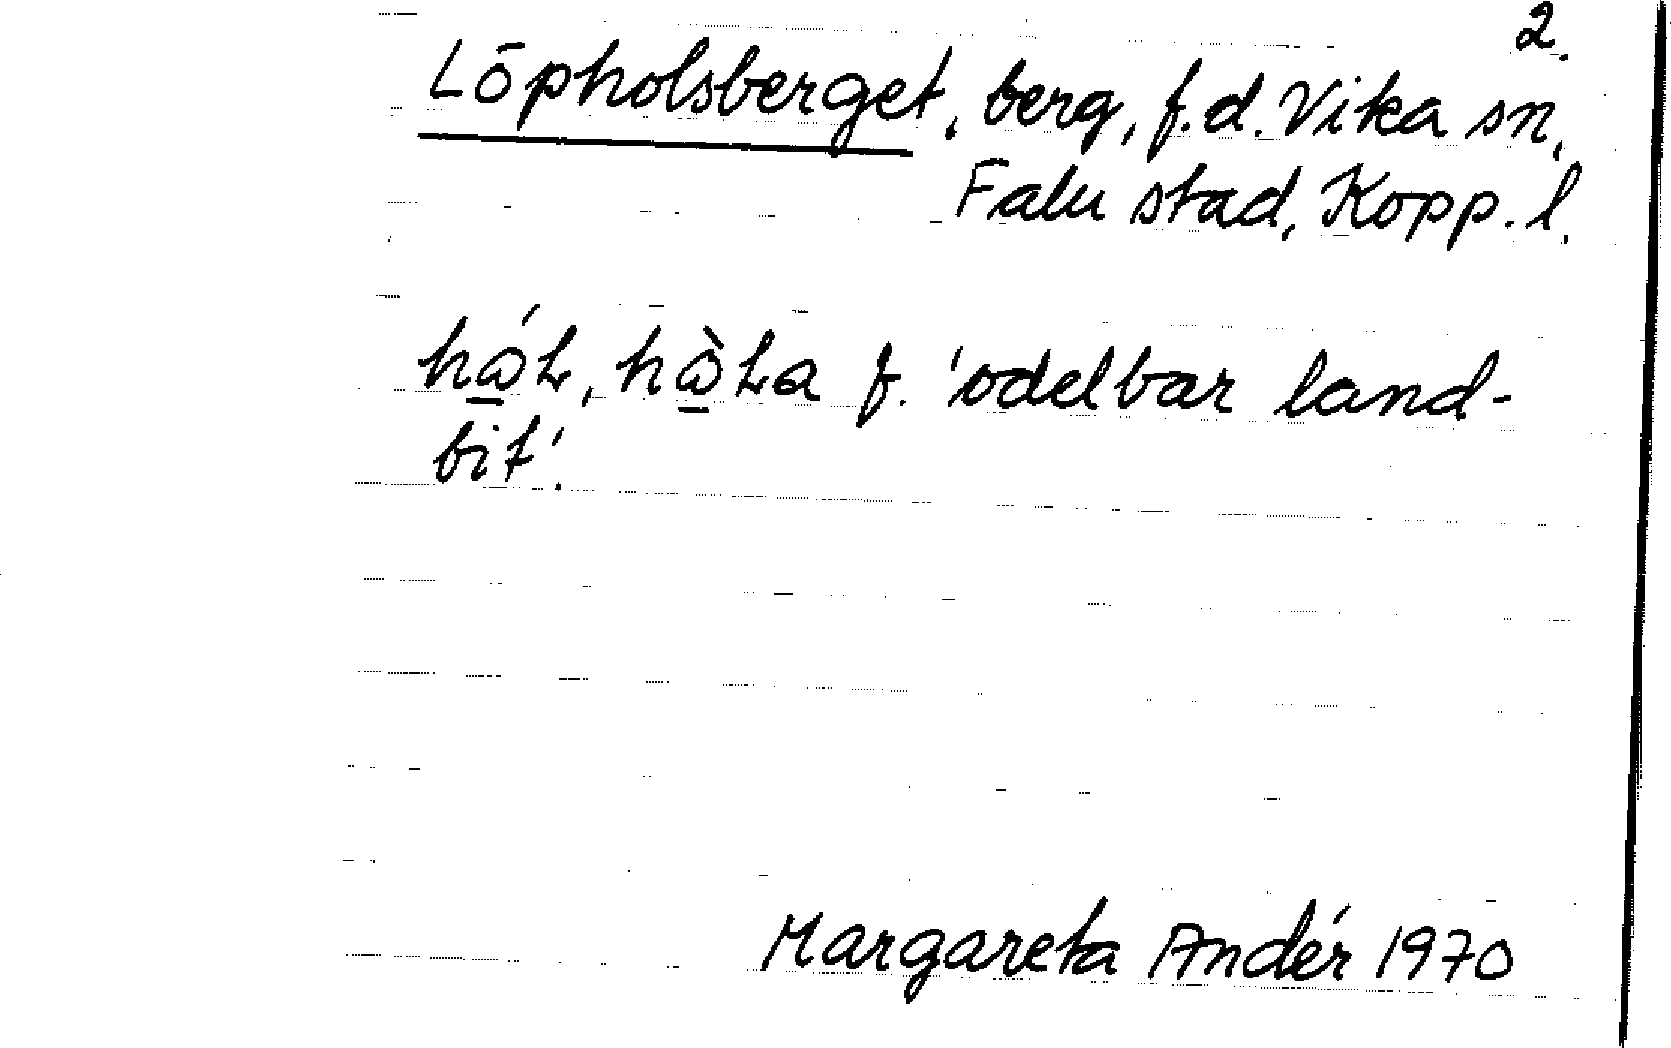 2.
Löpholsberget, berg, f.d. Vika sn,
Falu stad, Kopp. l.
f. 'odelbar land-
bit'.
Margareta Andér 1970